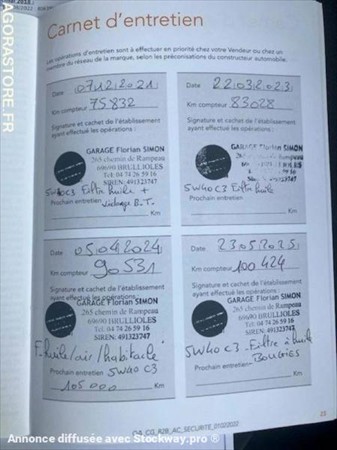 AGORASTORE.FR
Carnet d'entretien
Les opérations d'entretien sont à effectuer en priorité chez votre Vendeur ou chez un
membre du réseau de la marque, selon les préconisations du constructeur automobile.
Date 07.12.2021
Km compteur 75832
Signature et cachet de l'établissement
ayant effectué les opérations :
GARAGE Florian SIMON
265 chemin de Rampeau
69690 BRULLIOLES
Tél: 04 74 26 59 16
SIREN: 491323747
5W40C3 Filtre huile +
Prochain entretien Vidange B.T.
Km
Date 22.03.2023
Km compteur 83028
Signature et cachet de l'établissement
ayant effectué les opérations :
GARAGE Florian SIMON
5W40 C3 Filtre huile
Prochain entretien
Km
Date 05.04.2024
Km compteur 90531
Signature et cachet de l'établissement
ayant effectué les opérations :
GARAGE Florian SIMON
265 chemin de Rampeau
69690 BRULLIOLES
Tél: 04 74 26 59 16
SIREN: 491323747
F. huile/air/habitacle
Prochain entretien 5W40 C3
105000 Km
Date 23.05.2025
Km compteur 100424
Signature et cachet de l'établissement
ayant effectué les opérations :
GARAGE Florian SIMON
265 chemin de Rampeau
69690 BRULLIOLES
Tél: 04 74 26 59 16
SIREN: 491323747
5W40 C3 - Filtre à huile
Prochain entretien BOUGIES
Km
04_CG_R2B_AC_SECURITE_01022022
Annonce diffusée avec Stockway.pro ®